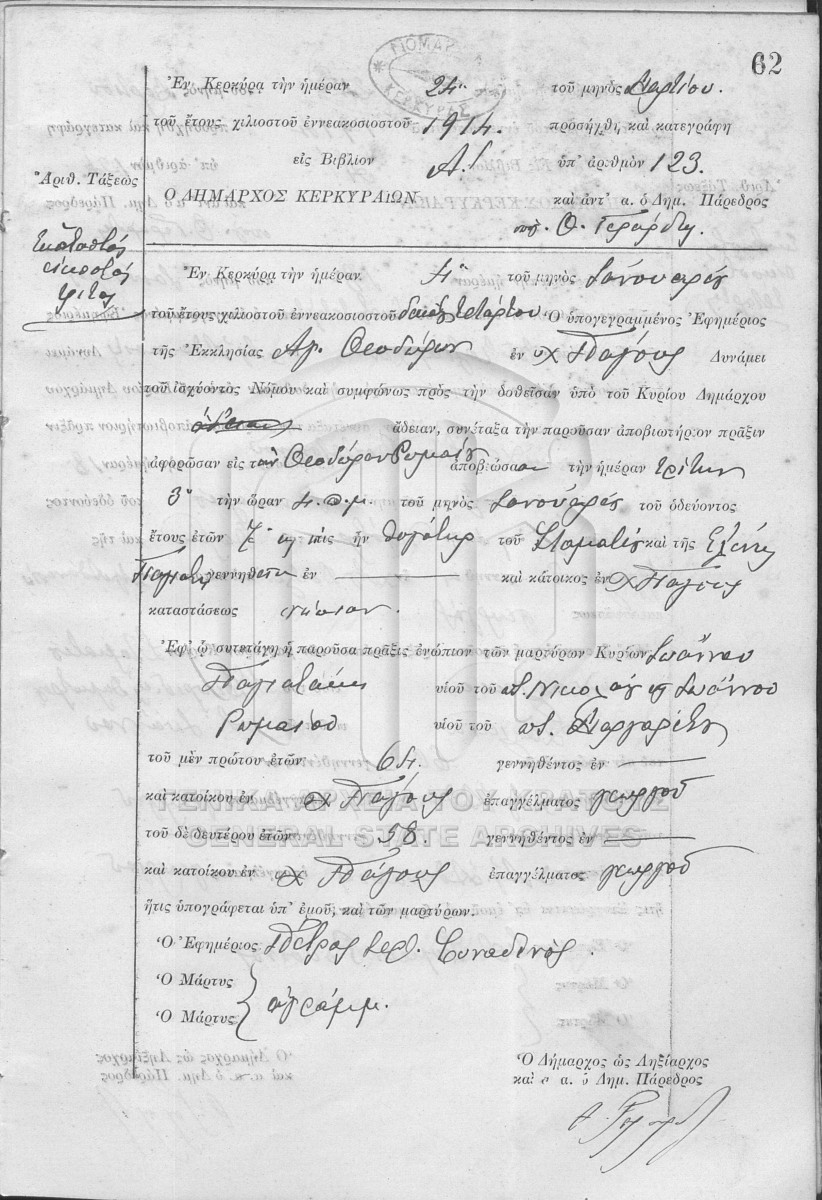 62
ΚΕΡΚΥΡΑΣ
Ἐν Κερκύρᾳ τὴν ἡμέραν 24 τοῦ μηνὸς Μαρτίου.
τοῦ ἔτους χιλιοστοῦ ἐννεακοσιοστοῦ 1914. προσήχθη καὶ κατεγράφη
εἰς Βιβλίον Α. ὑπ' ἀριθμὸν 123.
Ἀριθ. Τάξεως
Ο ΔΗΜΑΡΧΟΣ ΚΕΡΚΥΡΑΙΩΝ καὶ ἀντ' α. ὁ Δημ. Πάρεδρος
Ἑκατοστός
εἰκοστός
τρίτος
Ἐν Κερκύρᾳ τὴν ἡμέραν 4η τοῦ μηνὸς Ἰανουαρίου
τοῦ ἔτους χιλιοστοῦ ἐννεακοσιοστοῦ δεκάτου τετάρτου Ὁ ὑπογεγραμμένος Ἐφημέριος
τῆς Ἐκκλησίας Ἁγ. Θεοδώρων ἐν χ Πάγους Δυνάμει
τοῦ ἰσχύοντος Νόμου καὶ συμφώνως πρὸς τὴν δοθεῖσαν ὑπὸ τοῦ Κυρίου Δημάρχου
ἄδειαν, συνέταξα τὴν παροῦσαν ἀποβιωτήριον πρᾶξιν
ἀφορῶσαν εἰς τὴν Θεοδώραν Ρωμαίου ἀποβιώσασαν τὴν ἡμέραν Τρίτην
3η τὴν ὥραν 4 π.μ. τοῦ μηνὸς Ἰανουαρίου τοῦ ὁδεύοντος
ἔτους ἐτῶν ἥτις ἦν θυγάτηρ τοῦ Σταματίου καὶ τῆς Ἑλένης
γεννηθεῖσα ἐν — καὶ κάτοικος ἐν χ Πάγους
καταστάσεως νήπιον.
Ἐφ' ᾧ συνετάγη ἡ παροῦσα πρᾶξις ἐνώπιον τῶν μαρτύρων Κυρίων Ἰωάννου
Παγιατάκη υἱοῦ τοῦ ποτ. Νικολάου καὶ Ἰωάννου
Ρωμαίου υἱοῦ τοῦ ποτ. Μαργαρίτη
τοῦ μὲν πρώτου ἐτῶν 64. γεννηθέντος ἐν —
καὶ κατοίκου ἐν χ Πάγους ἐπαγγέλματος γεωργοῦ
ΓΕΝΙΚΑ ΑΡΧΕΙΑ ΤΟΥ ΚΡΑΤΟΥΣ
τοῦ δὲ δευτέρου ἐτῶν 58. γεννηθέντος ἐν —
GENERAL STATE ARCHIVES
καὶ κατοίκου ἐν χ Πάγους ἐπαγγέλματος γεωργοῦ
ἥτις ὑπογράφεται ὑπ' ἐμοῦ, καὶ τῶν μαρτύρων.
Ὁ Ἐφημέριος Πέτρος ἱερ. Συναδινός.
Ὁ Μάρτυς
Ὁ Μάρτυς ἀγράμμ.
Ὁ Δήμαρχος ὡς Ληξίαρχος
καὶ α. ὁ Δημ. Πάρεδρος